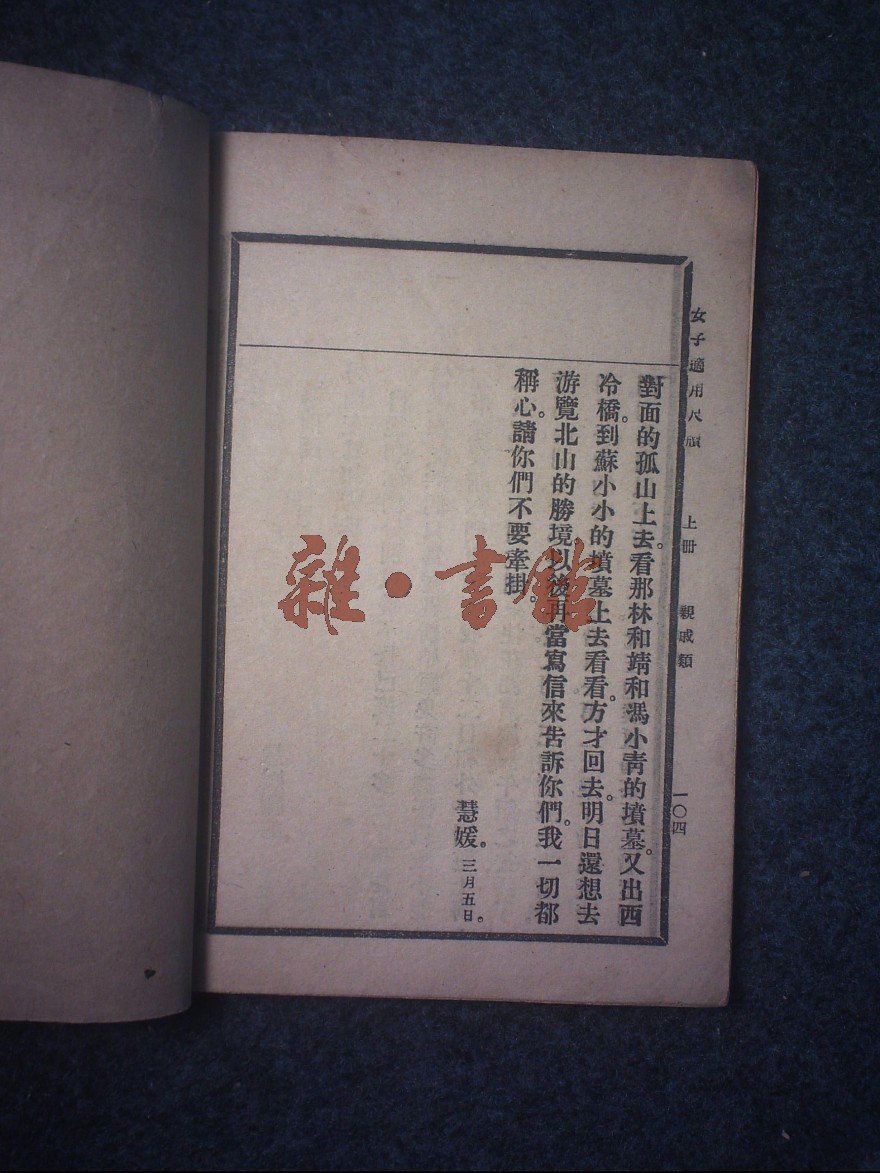 女子適用尺牘 上冊 親戚類 一〇四
對面的孤山上去。看那林和靖和馮小靑的墳墓。又出西
冷橋。到蘇小小的墳墓上去看看。方才回去。明日還想去
游覽北山的勝境。以後再當寫信來告訴你們。我一切都
稱心。請你們不要牽掛。
慧媛。三月五日。
雜·書館